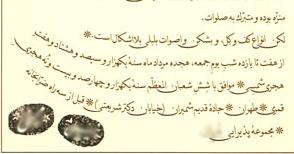 منزّه بوده و متبرّک به صلوات.
لکن انواع کف و کِل، و بشکن و اصوات بلبلی بلااشکال است.*
از هفت تا یازده شب یوم جمعه، هجده مرداد ماه سنهٔ یکهزار و سیصد و هشتاد و هفت
هجری شمسی * موافق با شش شعبان المعظّم سنهٔ یکهزار و چهارصد و بیست و نه هجری
قمری * طهران * جادهٔ قدیم شمیران (خیابان دکتر شریعتی) * قبل از سه‌راه ضرابخانه
* مجموعهٔ پذیرایی